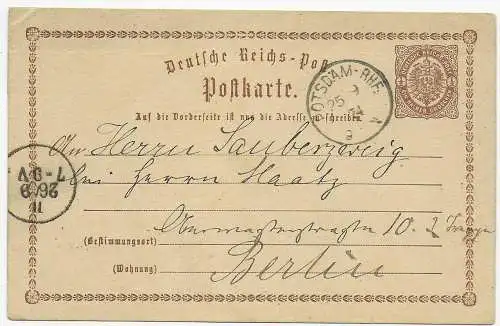 Deutsche Reichs-Post
Postkarte.
POTSDAM-RHE
25 9
74
9
Auf die Vorderseite ist nur die Adresse zu schreiben.
An Herrn Sauberzweig
bei Herrn Haatz
10. 2 Treppe
(Bestimmungsort)
Berlin
(Wohnung)
II
26 9
7-8V